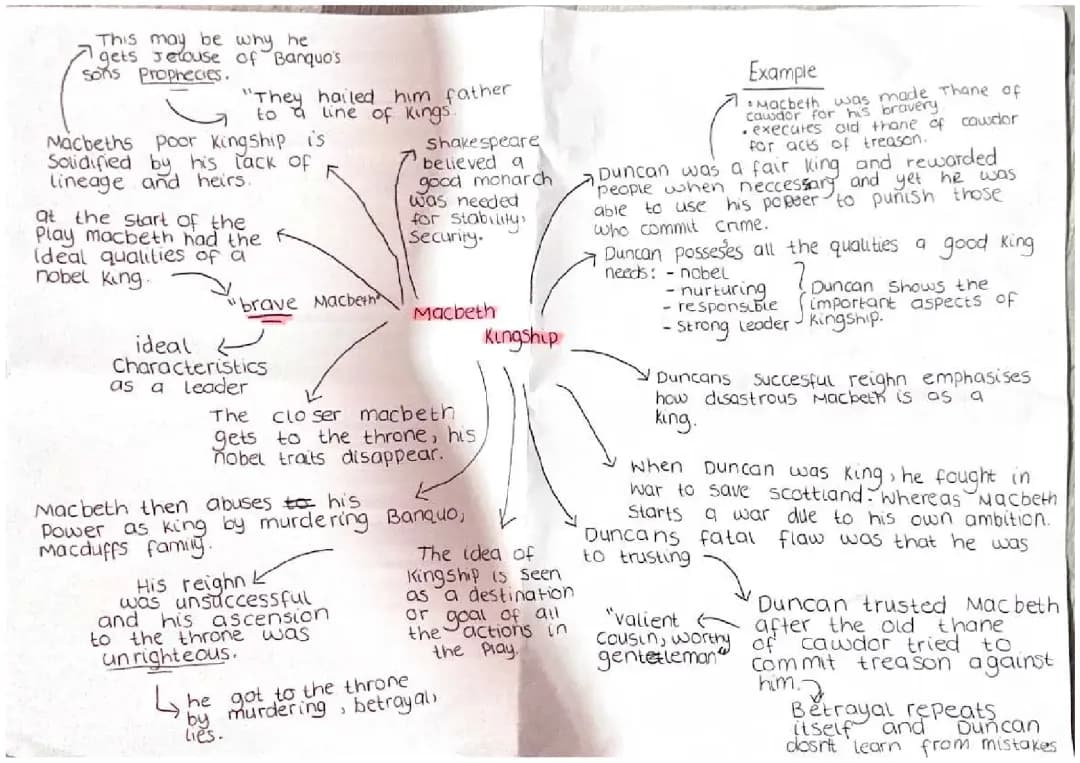 This may be why he
gets Jelouse of Banquo's
sons Prophecies.
"They hailed him father
to a line of Kings.
Macbeths poor Kingship is
Solidified by his lack of
lineage and heirs.
Shakespeare
believed a
good monarch
was needed
for stability,
security.
at the start of the
Play macbeth had the
Ideal qualities of a
nobel King.
"brave Macbeth"
ideal
Characteristics
as a leader
Macbeth
Kingship
The closer macbeth
gets to the throne, his
nobel traits disappear.
Macbeth then abuses to his
Power as King by murdering Banquo,
Macduffs family.
His reighn
was unsuccessful
and his ascension
to the throne was
unrighteous.
he got to the throne
by murdering, betrayal,
lies.
The idea of
Kingship is seen
as a destination
or goal of all
the actions in
the Play.
Example
• Macbeth was made Thane of
cawdor for his bravery
• executes old thane of cawdor
for acts of treason.
Duncan was a fair King and rewarded
people when neccessary and yet he was
able to use his power to punish those
who commit crime.
Duncan posseses all the qualities a good King
needs: - nobel
- nurturing
- responsible
- strong leader
Duncan shows the
important aspects of
Kingship.
Duncans succesful reighn emphasises
how disastrous Macbeth is as a
king.
When Duncan was King, he fought in
war to save scottland. whereas Macbeth
starts a war due to his own ambition.
Duncans fatal flaw was that he was
to trusting
Duncan trusted Macbeth
after the old thane
of cawdor tried to
commit treason against
him.
"valient
cousin, worthy
gentleman"
Betrayal repeats
itself and Duncan
dosn't learn from mistakes